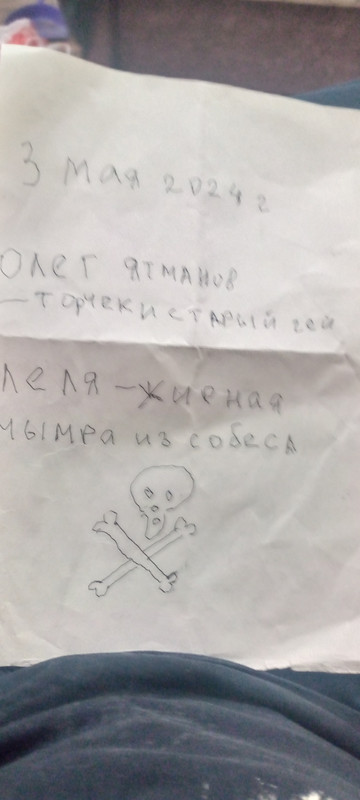 3 мая 2024 г
Олег Ятманов
– торчек и старый гей
Леля – жирная
чымра из собеса